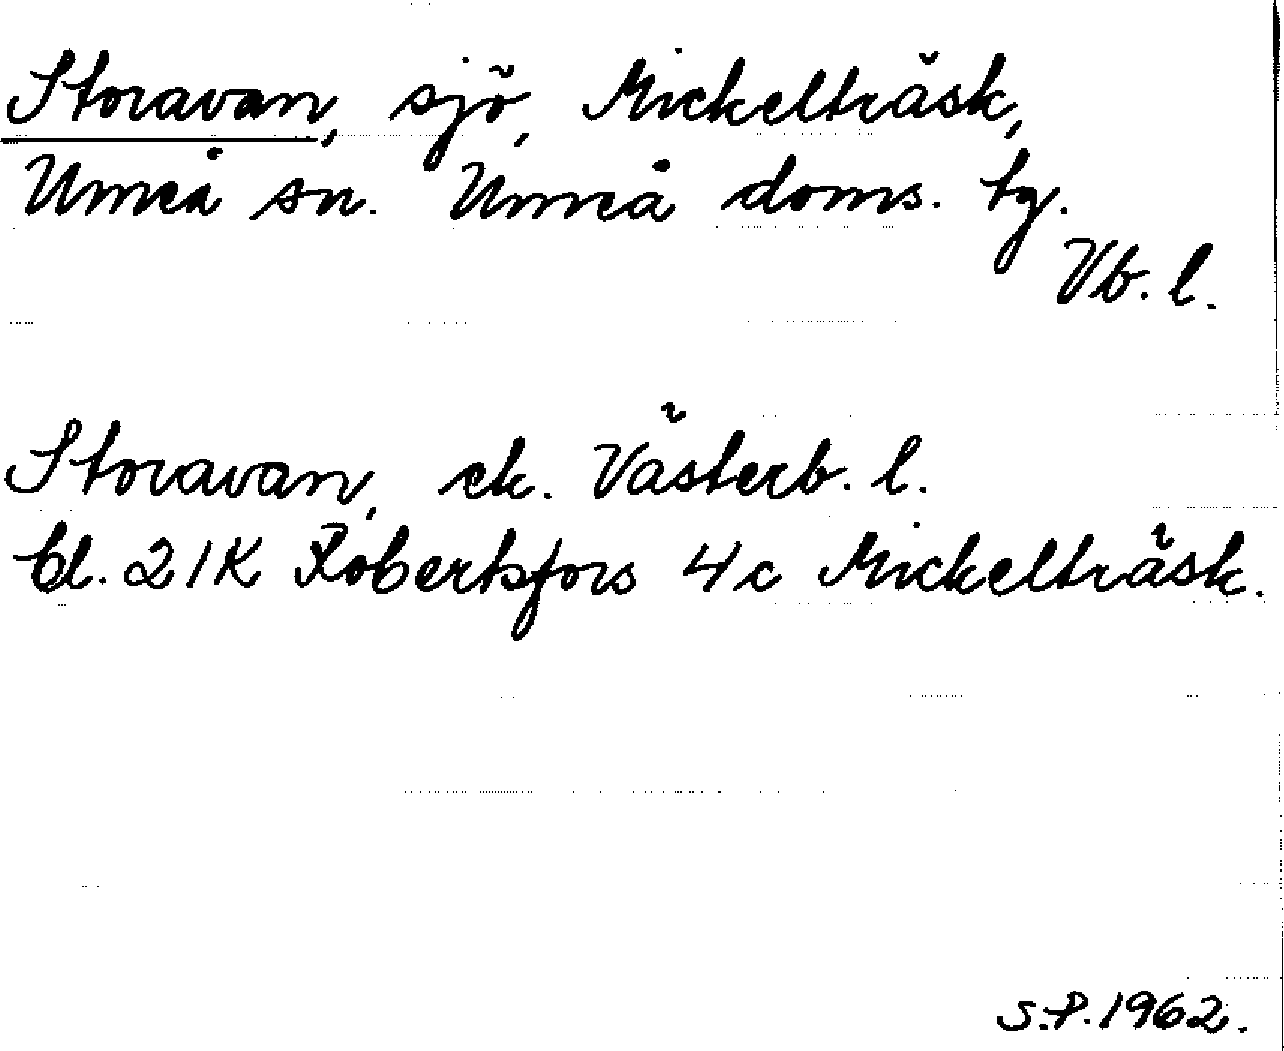 Storavan, sjö, Mickelträsk,
Umeå sn. Umeå doms. tg.
Vb. l.
Storavan, ek. Västerb. l.
bl. 21K Robertsfors 4c Mickelträsk.
S.P. 1962.